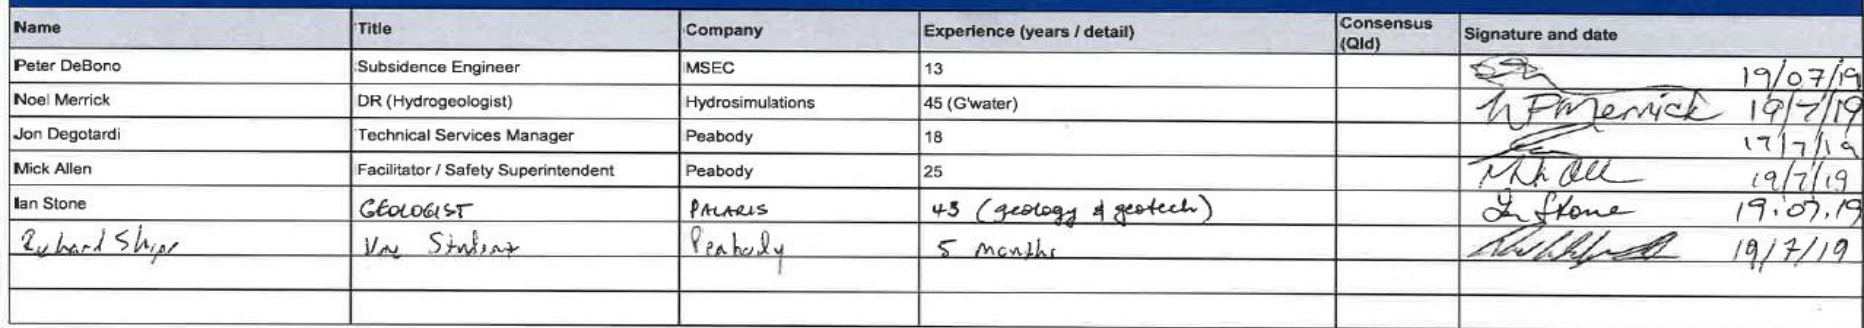 Name Title Company Experience (years / detail) Consensus (Qld) Signature and date
Peter DeBono Subsidence Engineer MSEC 13 19/07/19
Noel Merrick DR (Hydrogeologist) Hydrosimulations 45 (G'water) N P Merrick 19/7/19
Jon Degotardi Technical Services Manager Peabody 18 19/7/19
Mick Allen Facilitator / Safety Superintendent Peabody 25 19/7/19
Ian Stone GEOLOGIST PALARIS 43 (geology & geotech) Ian Stone 19.07.19
Richard Student Peabody 5 months 19/7/19